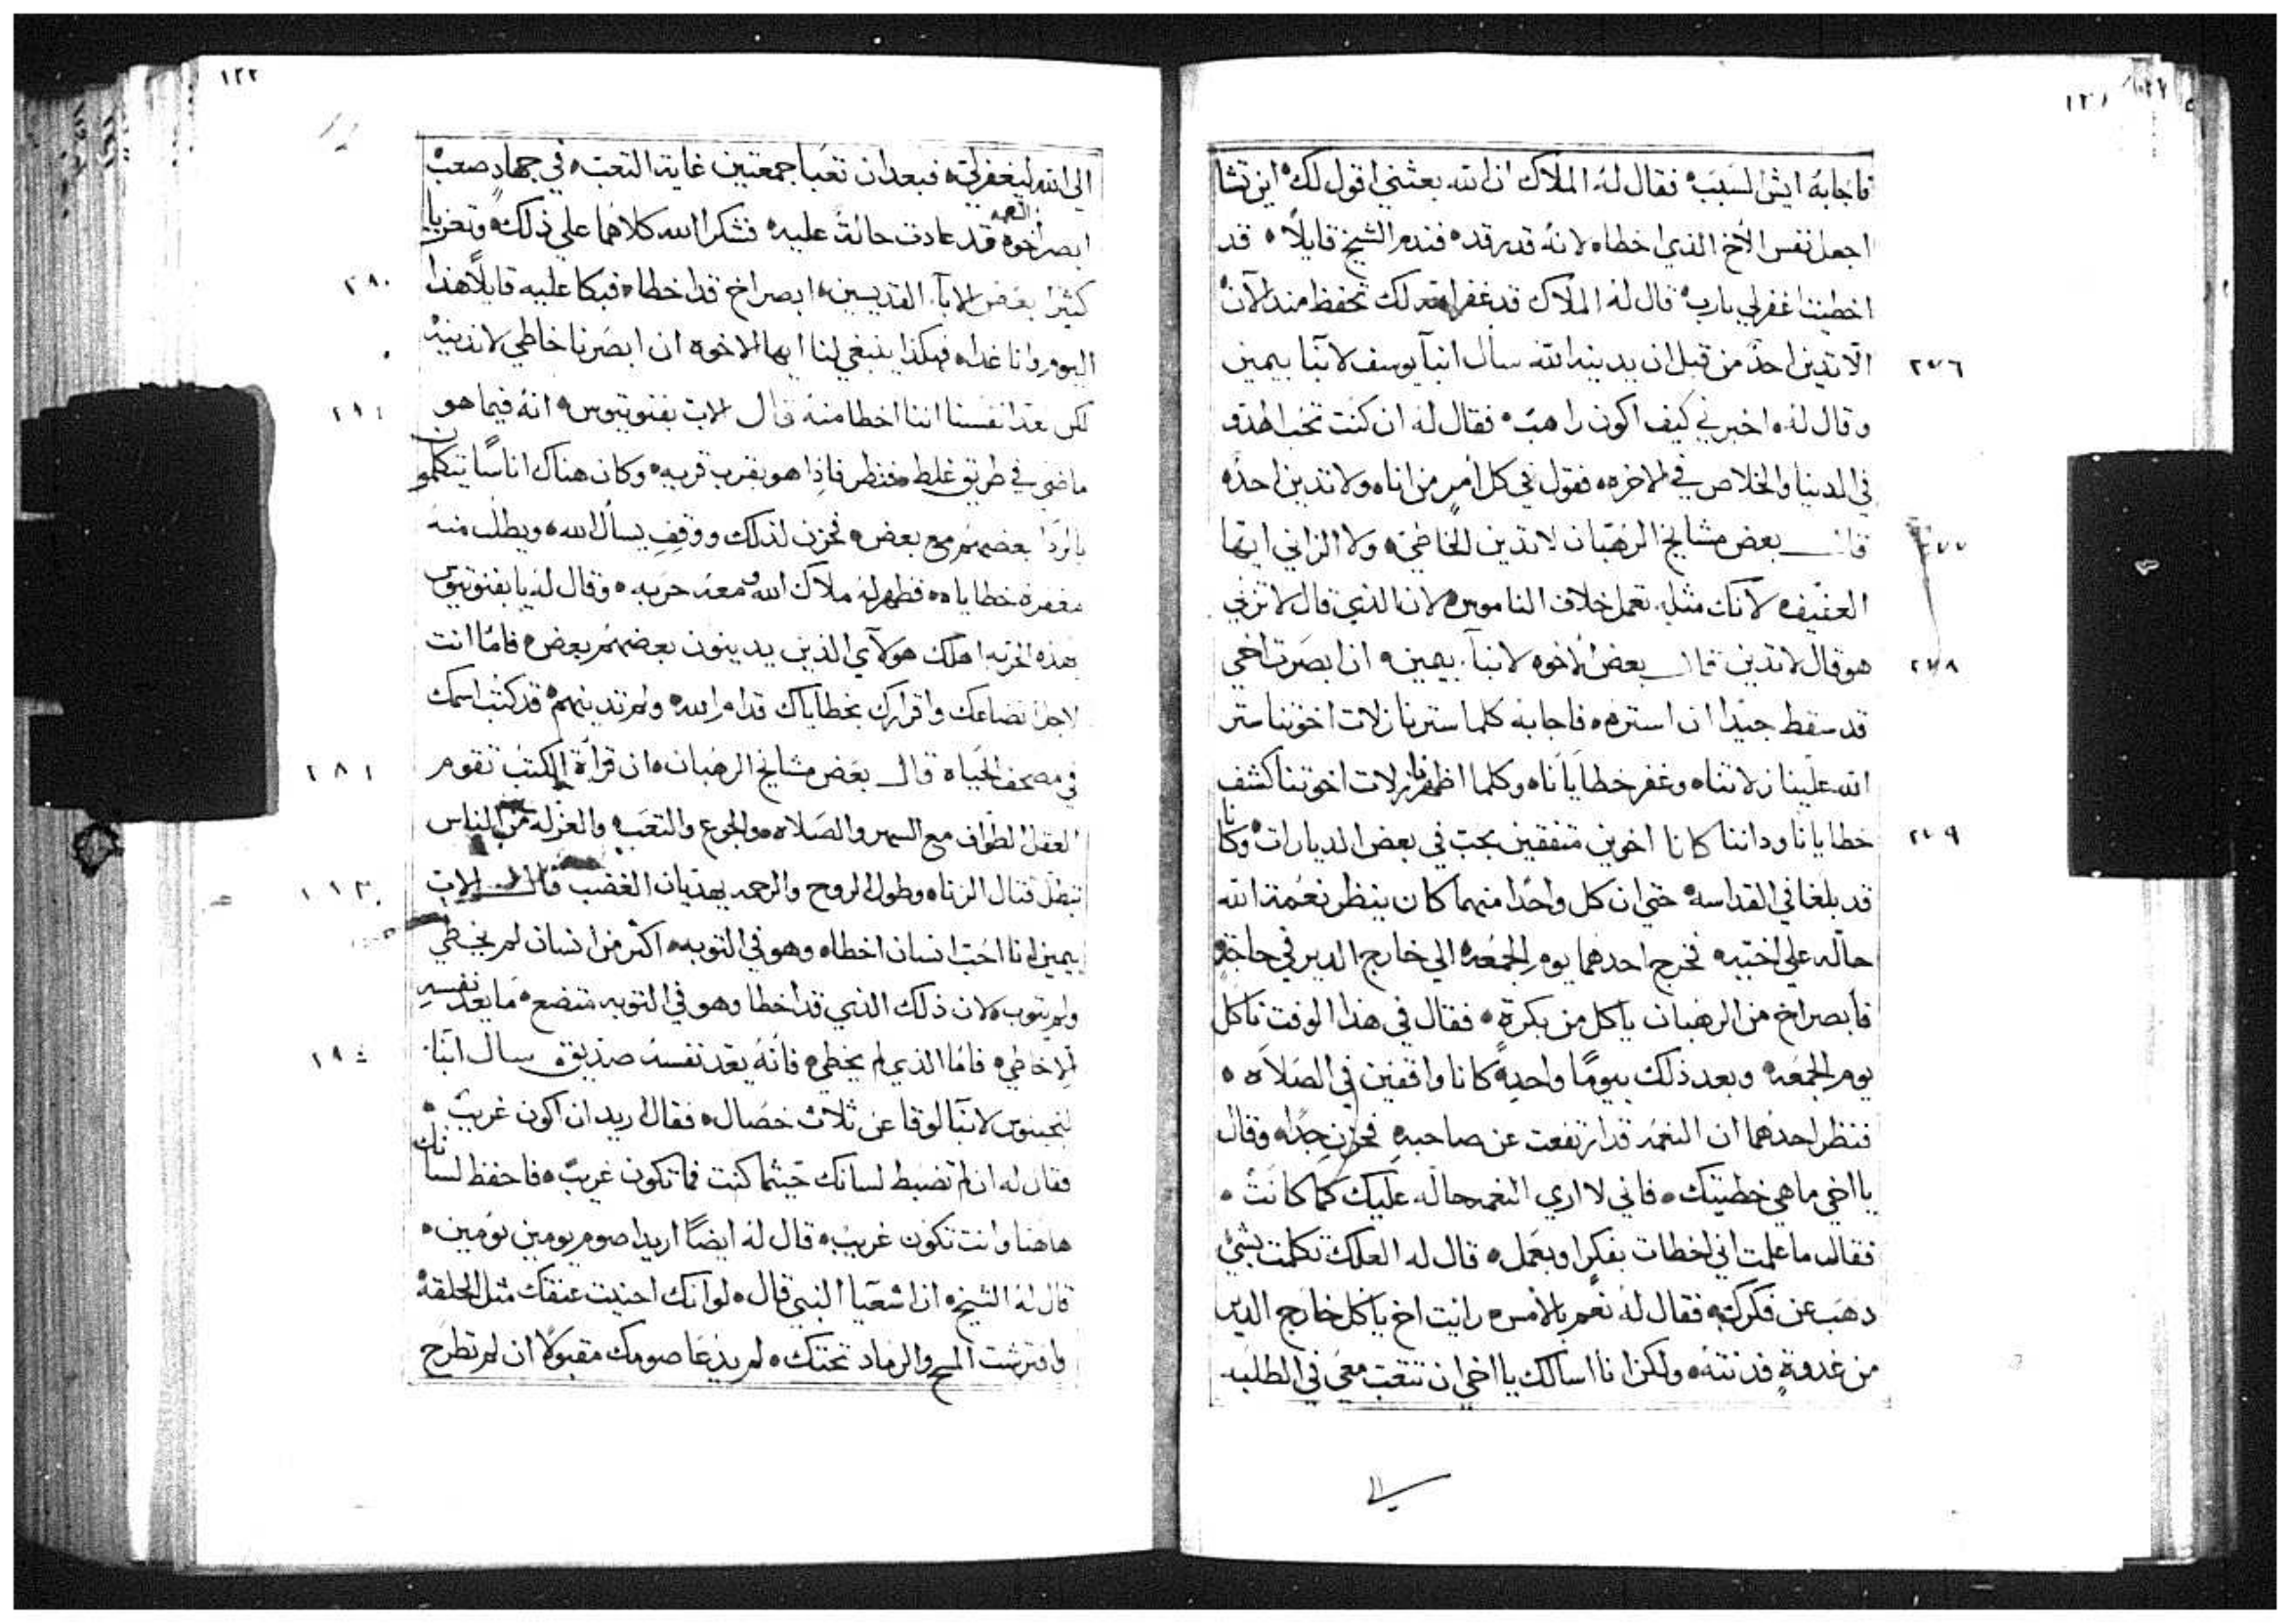 ١٢١
فاجابه ايش السبب فقال له الملاك ان الله بعثني اقول لك اين تشا
اجعل نفس الاخ الذي اخطاه لانه قد رقد فندم الشيخ قايلاً قد
اخطيت اغفرلي يارب قال له الملاك قد غفر الله لك تحفظ منذ الان
٢٧٦
الا تدين احد من قبل ان يدينه الله سال انبا يوسف لانبا بيمين
وقال له اخبرني كيف اكون راهب فقال له ان كنت تحب الهدو
في الدنيا والخلاص في الاخره فقول في كل أمر من اناه ولا تدين احد
٢٧٧
قال بعض مشايخ الرهبان لا تدين الخاطي ولا الزاني ايها
العفيف لانك مثله تعمل خلاف الناموس لان الذي قال لا تزني
٢٧٨
هو قال لا تدين قال بعض الاخوه لانبا بيمين ان ابصرت اخي
قد سقط جيدا ان استره فاجابه كلما سترنا زلات اخوتنا ستر
الله علينا زلاتنا وغفر خطايانا وكلما اظهرنا زلات اخوتنا كشف
٢٧٩
خطايانا وداننا كانا اخوين متفقين بحب في بعض الديارات وكانا
قد بلغا في القداسه حتي ان كل واحدا منهما كان ينظر نعمة الله
حاله علي اخيه فخرج احدهما يوم الجمعه الي خارج الدير في حاجة
فابصر اخ من الرهبان ياكل من بكرة فقال في هذا الوقت تاكل
يوم الجمعه وبعد ذلك بيومًا واحدٍ كانا واقفين في الصلاه
فنظر احدهما ان النعمه قد ارتفعت عن صاحبه فحزن جدًا وقال
يا اخي ما هي خطيتك فاني لا اري النعمه حاله عليك كما كانت
فقال ما علمت اني اخطات بفكر او بعمل قال له العلك تكلمت بشي
دهب عن فكرك فقال له نعم بالامس رايت اخ ياكل خارج الدير
من غدوةٍ فدنته ولكن انا اسالك يا اخي ان تتعب معي في الطلبه
الي
١٢٢
الي الله ليغفر لي فبعد ان تعبا جمعتين غاية التعب في جهادٍ صعب
ابصر اخوه النعمه قد عادت حالة عليه فشكرا الله كلاهما علي ذلك وتعزيا
٢٨٠
كثيرا بعض الابا القديسين ابصر اخ قد اخطاه فبكا عليه قايلاً هذا
اليوم وانا غدا فهكذا ينبغي لنا ايها الاخوه ان ابصرنا خاطي لا ندينه
٢٨١
لكن نعد انفسنا اننا اخطا منه قال الاب بفنوتيوس انه فيما هو
ماضي في طريق غلط فنظر فاذا هو بقرب قريه وكان هناك اناسًا يتكلمون
بالردا بعضهم مع بعض فحزن لذلك ووقف يسال الله ويطلب منه
مغفرة خطاياه فظهر له ملاك الله ومعه حربه وقال له يا بفنوتيوس
بهذه الحربه اهلك هولاي الذين يدينون بعضهم بعض فاما انت
لاجل اتضاعك واقرارك بخطاياك قدام الله ولم تدينهم قد كتب اسمك
٢٨٢
في مصحف الحياه قال بعض مشايخ الرهبان ان قراة الكتب تقوم
العقل الطواف مع السهر والصلاه والجوع والتعب والعزله من الناس
٢٨٣
تبطل قتال الزناه وطول الروح والرحمه يهديان الغضب قال الاب
بيمين انا احب انسان اخطاه وهو في التوبه اكثر من انسان لم يخطي
ولم يتوب لان ذلك الذي قد اخطا وهو في التوبه متضع ما يعد نفسه
٢٨٤
الا خاطي فاما الذي لم يخطي فانه يعد نفسه صديق سال انبا
لنجينوس لانبا لوقا عن ثلاث خصال فقال اريد ان اكون غريب
فقال له ان لم تضبط لسانك حيثما كنت فما تكون غريب فاحفظ لسانك
هاهنا وانت تكون غريب قال له ايضًا اريد اصوم يومين يومين
قال له الشيخ ان اشعيا النبي قال لو انك احنيت عنقك مثل الحلقه
وافترشت المسح والرماد تحتك لم يدعا صومك مقبولًا ان لم تطرح